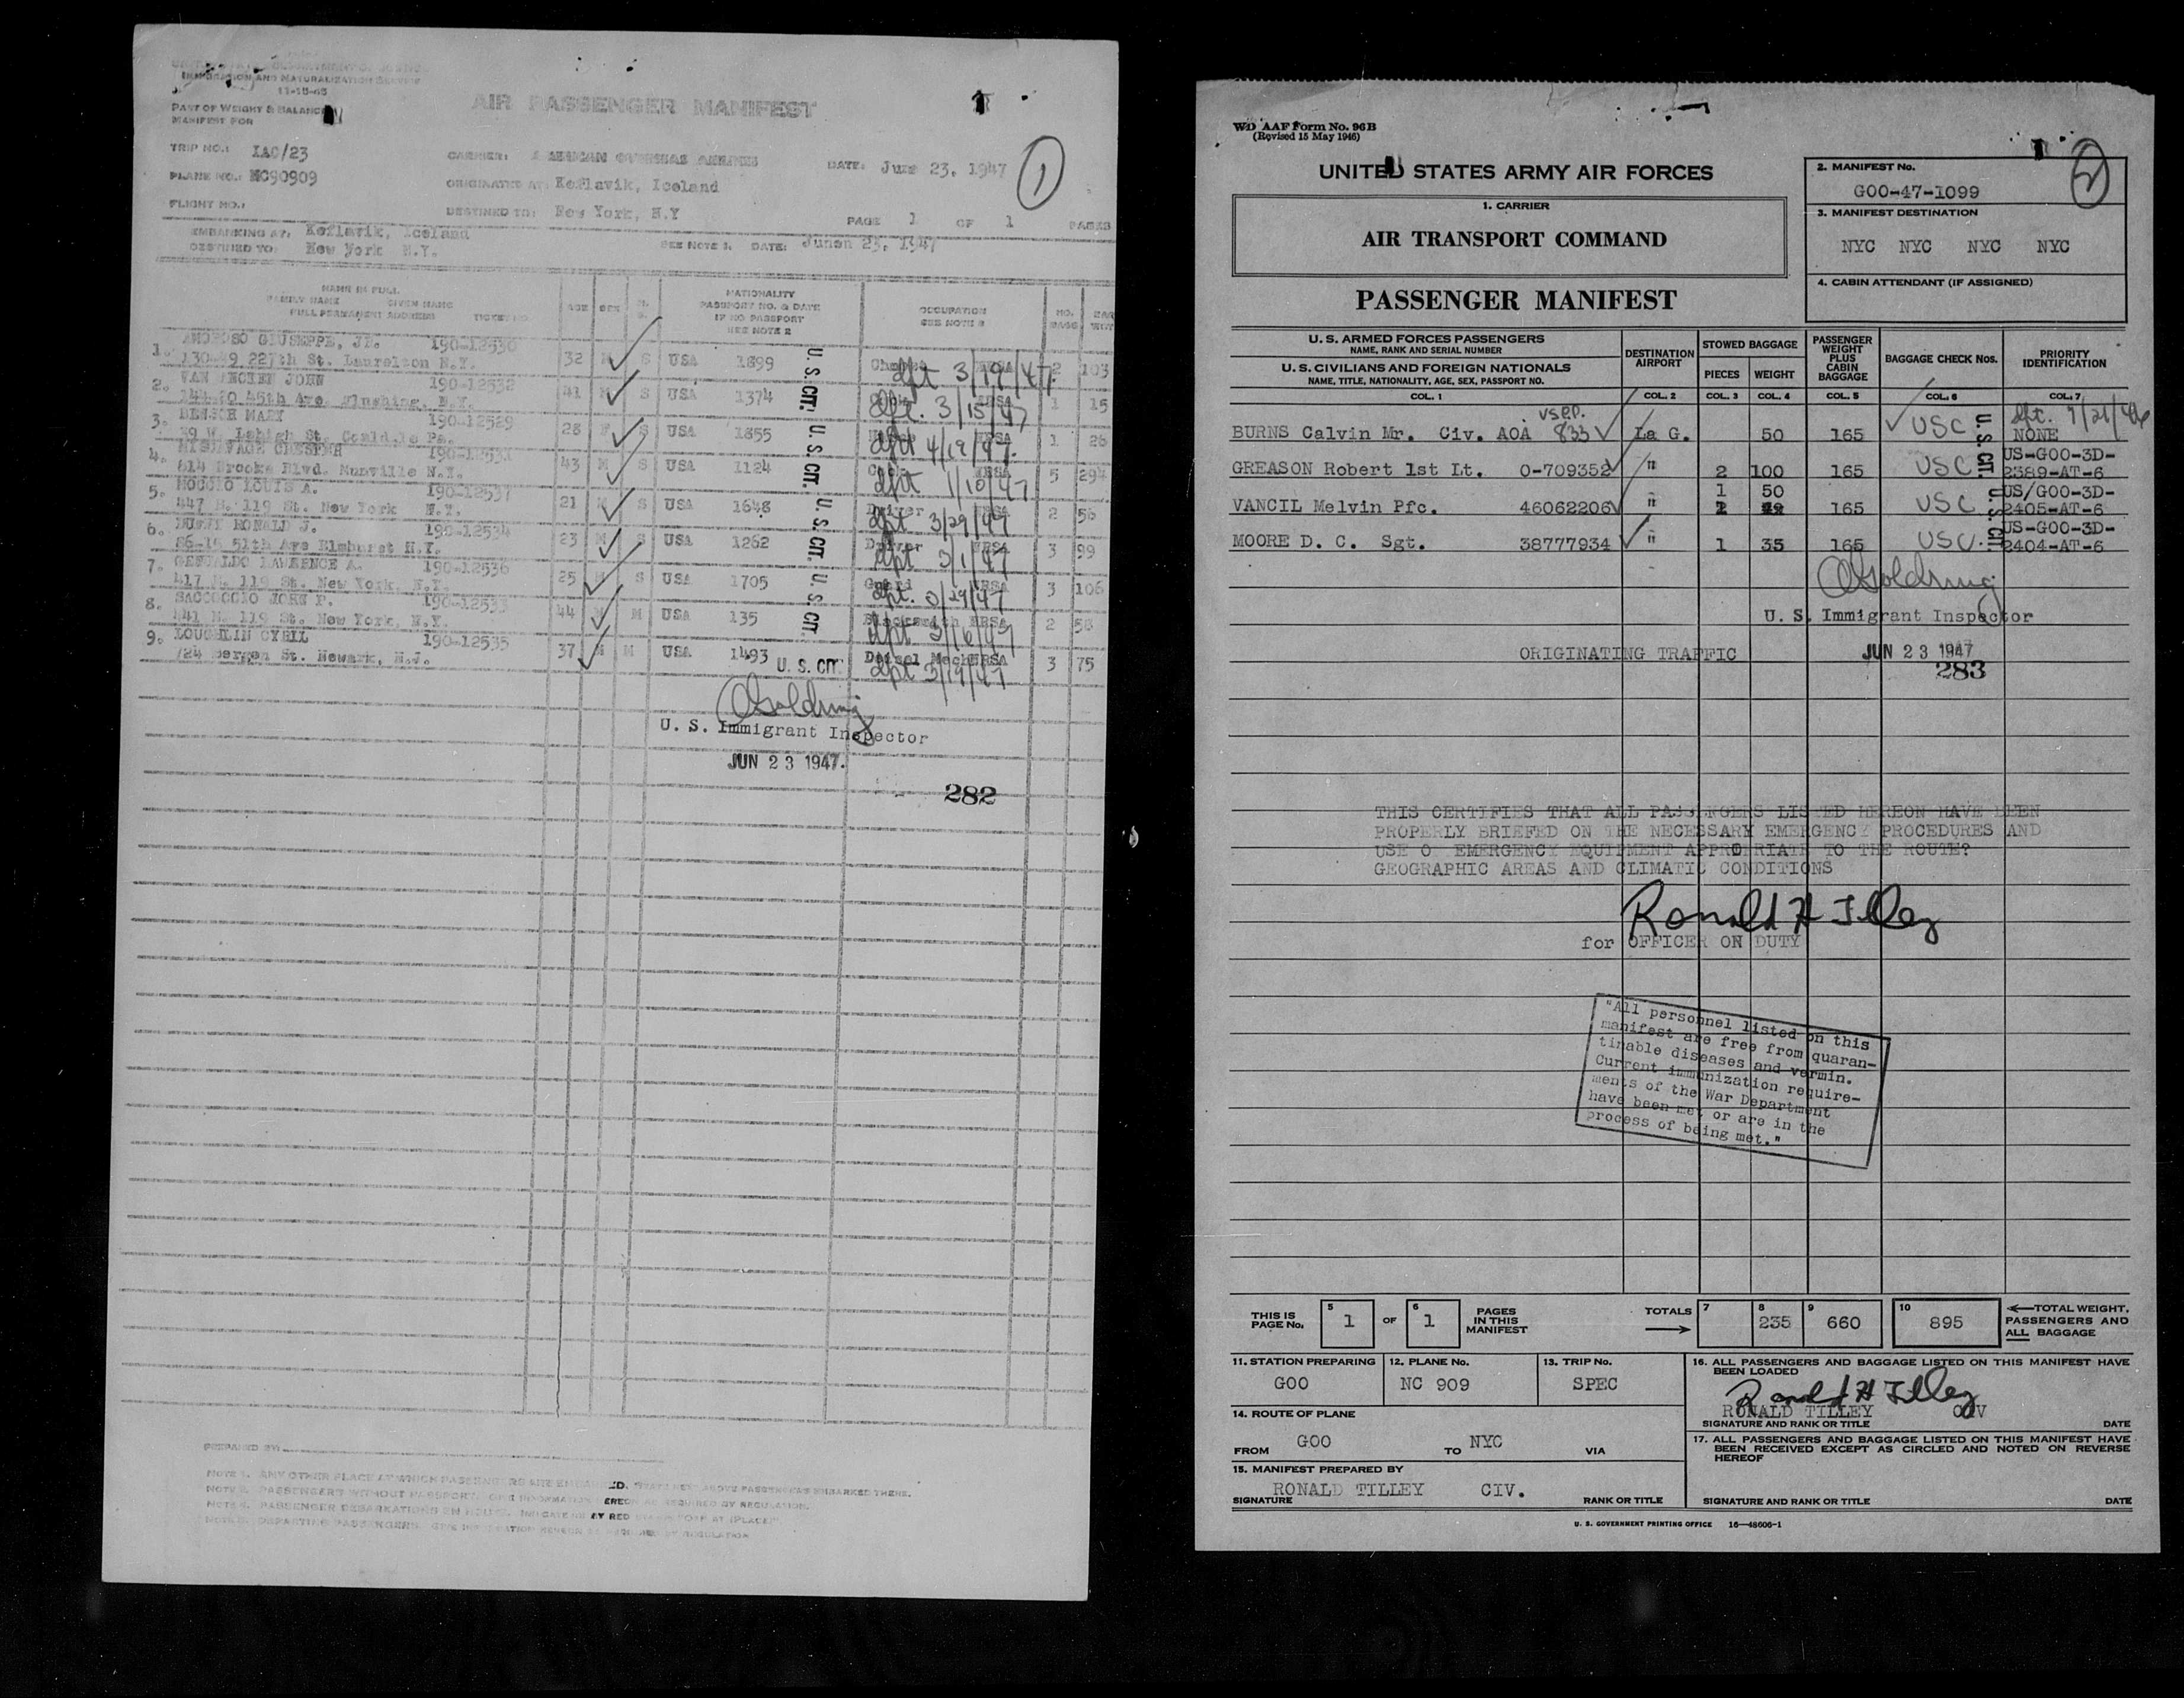 IMMIGRATION AND NATURALIZATION SERVICE
11-15-45
PART OF WEIGHT & BALANCE
MANIFEST FOR
AIR PASSENGER MANIFEST
1
TRIP NO.: IAC/23
CARRIER: AMERICAN OVERSEAS AIRLINES
DATE: June 23, 1947
PLANE NO.: NC90909
ORIGINATED AT: Keflavik, Iceland
FLIGHT NO.:
DESTINED TO: New York, N.Y
PAGE 1 OF 1 PAGES
EMBARKING AT: Keflavik, Iceland
SEE NOTE 1. DATE: Junen 23, 1947
DESTINED TO: New York N.Y.
NAME IN FULL
FAMILY NAME GIVEN NAME
FULL PERMANENT ADDRESS TICKET NO.
AGE SEX
NATIONALITY
PASSPORT NO. & DATE
IF NO PASSPORT
SEE NOTE 2
OCCUPATION
SEE NOTE 3
NO. BAGS
1. AMOROSO GIUSEPPE, JR. 190-12530
130-49 227th St. Laurelton N.Y. 32 M S USA 1899 dpt 3/19/47 2 103
2. VAN JOHN 190-12532
45th Ave. Flushing, N.Y. 41 M S USA 1374 dpt. 3/15/47 1 15
3. MARY 190-12529
29 W. Lehigh St. Pa. 28 F S USA 1855 dpt 4/19/47. 1 26
4. CHESTER 190-12531
614 Brooks Blvd. Manville N.J. 43 M S USA 1124 dpt 1/10/47 5 294
5. LOUIS A. 190-12537
447 E. 119 St. New York N.Y. 21 M S USA 1648 Driver dpt. 3/29/47 2 56
6. DUFFY RONALD J. 190-12534
86-15 51th Ave Elmhurst N.Y. 23 M S USA 1262 Driver dpt 3/1/47 3 99
7. LAWRENCE A. 190-12536
417 E. 119 St. New York, N.Y. 25 M S USA 1705 dpt. 3/29/47 3 106
8. SACCOCCIO JOHN P. 190-12533
441 E. 119 St. New York, N.Y. 44 M M USA 135 Blacksmith dpt 3/16/47 2 58
9. LOUGHLIN CYRIL 190-12535
724 Bergen St. Newark, N.J. 37 M M USA 1493 U. S. CIT. Diesel Mech dpt 3/19/47 3 75
U. S. CIT. U. S. CIT. U. S. CIT. U. S. CIT.
OGoldring
U. S. Immigrant Inspector
JUN 23 1947.
282
PREPARED BY:
NOTE 1. ANY OTHER PLACE AT WHICH PASSENGERS ARE
PASSENGERS EMBARKED THERE.
NOTE 2. PASSENGERS WITHOUT PASSPORT, GIVE INFORMATION HEREON AS REQUIRED BY REGULATION.
WD AAF Form No. 96B
(Revised 15 May 1946)
UNITED STATES ARMY AIR FORCES
1. CARRIER
AIR TRANSPORT COMMAND
PASSENGER MANIFEST
2. MANIFEST No.
GOO-47-1099
2
3. MANIFEST DESTINATION
NYC NYC NYC NYC
4. CABIN ATTENDANT (IF ASSIGNED)
U. S. ARMED FORCES PASSENGERS
NAME, RANK AND SERIAL NUMBER
U. S. CIVILIANS AND FOREIGN NATIONALS
NAME, TITLE, NATIONALITY, AGE, SEX, PASSPORT NO.
DESTINATION AIRPORT
STOWED BAGGAGE
PIECES WEIGHT
PASSENGER WEIGHT PLUS CABIN BAGGAGE
BAGGAGE CHECK Nos.
PRIORITY IDENTIFICATION
COL. 1 COL. 2 COL. 3 COL. 4 COL. 5 COL. 6 COL. 7
BURNS Calvin Mr. Civ. AOA 833 La G. 50 165 USC dpt. 9/21/46 NONE
GREASON Robert 1st Lt. O-709352 " 2 100 165 USC US-GOO-3D-2389-AT-6
VANCIL Melvin Pfc. 46062206 " 1 50 165 USC US/GOO-3D-2405-AT-6
MOORE D. C. Sgt. 38777934 " 1 35 165 USC. US-GOO-3D-2404-AT-6
U. S. CIT. U. S. CIT.
OGoldring
U. S. Immigrant Inspector
ORIGINATING TRAFFIC
JUN 23 1947
283
THIS CERTIFIES THAT ALL PASSENGERS LISTED HEREON HAVE BEEN
PROPERLY BRIEFED ON THE NECESSARY EMERGENCY PROCEDURES AND
USE OF EMERGENCY EQUIPMENT APPROPRIATE TO THE ROUTE?
GEOGRAPHIC AREAS AND CLIMATIC CONDITIONS
Ronald H Tilley
for OFFICER ON DUTY
"All personnel listed on this
manifest are free from quaran-
tinable diseases and vermin.
Current immunization require-
ments of the War Department
have been met or are in the
process of being met."
THIS IS PAGE No. 5 1 OF 6 1 PAGES IN THIS MANIFEST
TOTALS 7 8 235 9 660 10 895
TOTAL WEIGHT, PASSENGERS AND ALL BAGGAGE
11. STATION PREPARING
GOO
12. PLANE No.
NC 909
13. TRIP No.
SPEC
14. ROUTE OF PLANE
FROM GOO TO NYC VIA
15. MANIFEST PREPARED BY
RONALD TILLEY CIV.
SIGNATURE RANK OR TITLE
16. ALL PASSENGERS AND BAGGAGE LISTED ON THIS MANIFEST HAVE
BEEN LOADED
Ronald H Tilley
RONALD TILLEY CIV
SIGNATURE AND RANK OR TITLE DATE
17. ALL PASSENGERS AND BAGGAGE LISTED ON THIS MANIFEST HAVE
BEEN RECEIVED EXCEPT AS CIRCLED AND NOTED ON REVERSE
HEREOF
SIGNATURE AND RANK OR TITLE DATE
U. S. GOVERNMENT PRINTING OFFICE 16—48606-1